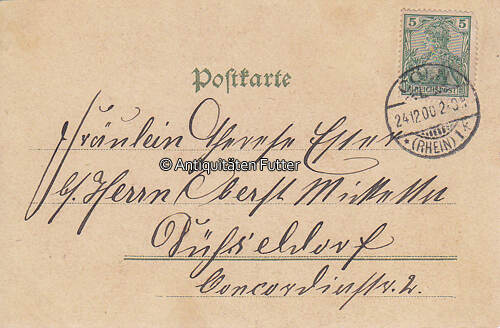 5 5
REICHSPOST
CÖLN
24.12.00 2-3
* (RHEIN) 1.
Postkarte
Fräulein Therese Esser
© Antiquitäten Futter
b/. Herrn Oberst
Düsseldorf
Concordiastr. 2.